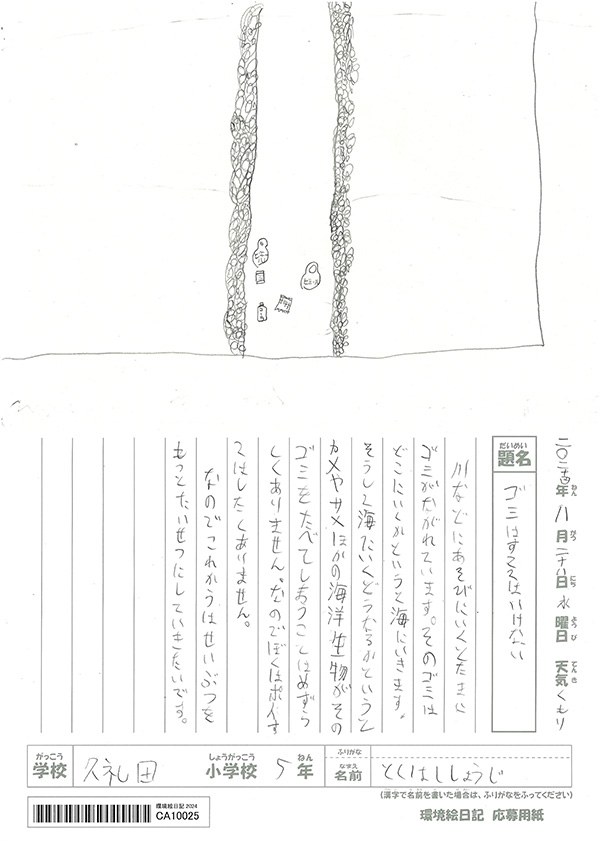 ビニール
ビニール
コーラ
二〇二四年ねん 八月がつ二十八日にち 水曜日ようび 天気てんき くもり
題名だいめい ゴミはすててはいけない
川などにあそびにいくとたまに
ゴミがながれています。そのゴミは
どこにいくかというと海にいきます。
そうして海にいくどうなるかというと
カメやサメほかの海洋生物がその
ゴミをたべてしまうことはめずら
しくありません。なのでぼくはポイす
てはしたくありません。
なのでこれからはせいぶつを
もっとたいせつにしていきたいです。
学校がっこう 久礼田 小学校しょうがっこう 5 年ねん
ふりがな
名前なまえ とくはししょうじ
(漢字で名前を書いた場合は、ふりがなをふってください)
環境絵日記 応募用紙
環境絵日記 2024
CA10025